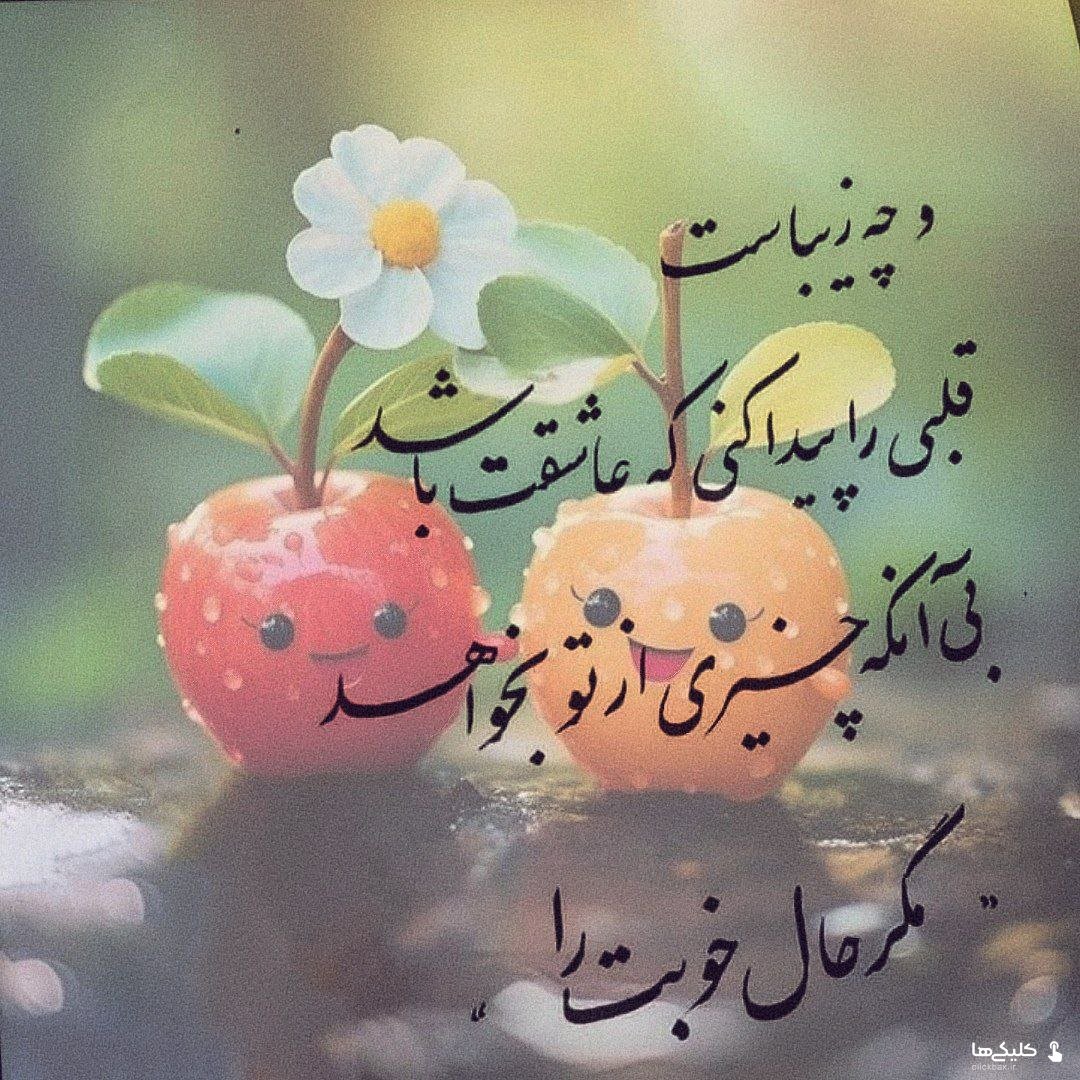 و چه زیباست
قلبی را پیدا کنی که عاشقت باشد
بی آنکه چیزی از تو بخواهد
" مگر حال خوبت را "
کلیکی‌ها
clickbax.ir